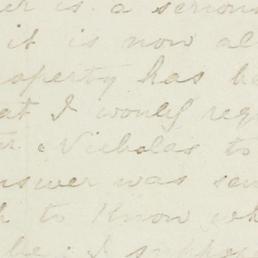 is a serious
it is now al
operty has be
at I would req
Nicholas to
nswer was sen
h to Know wh
be I suppose